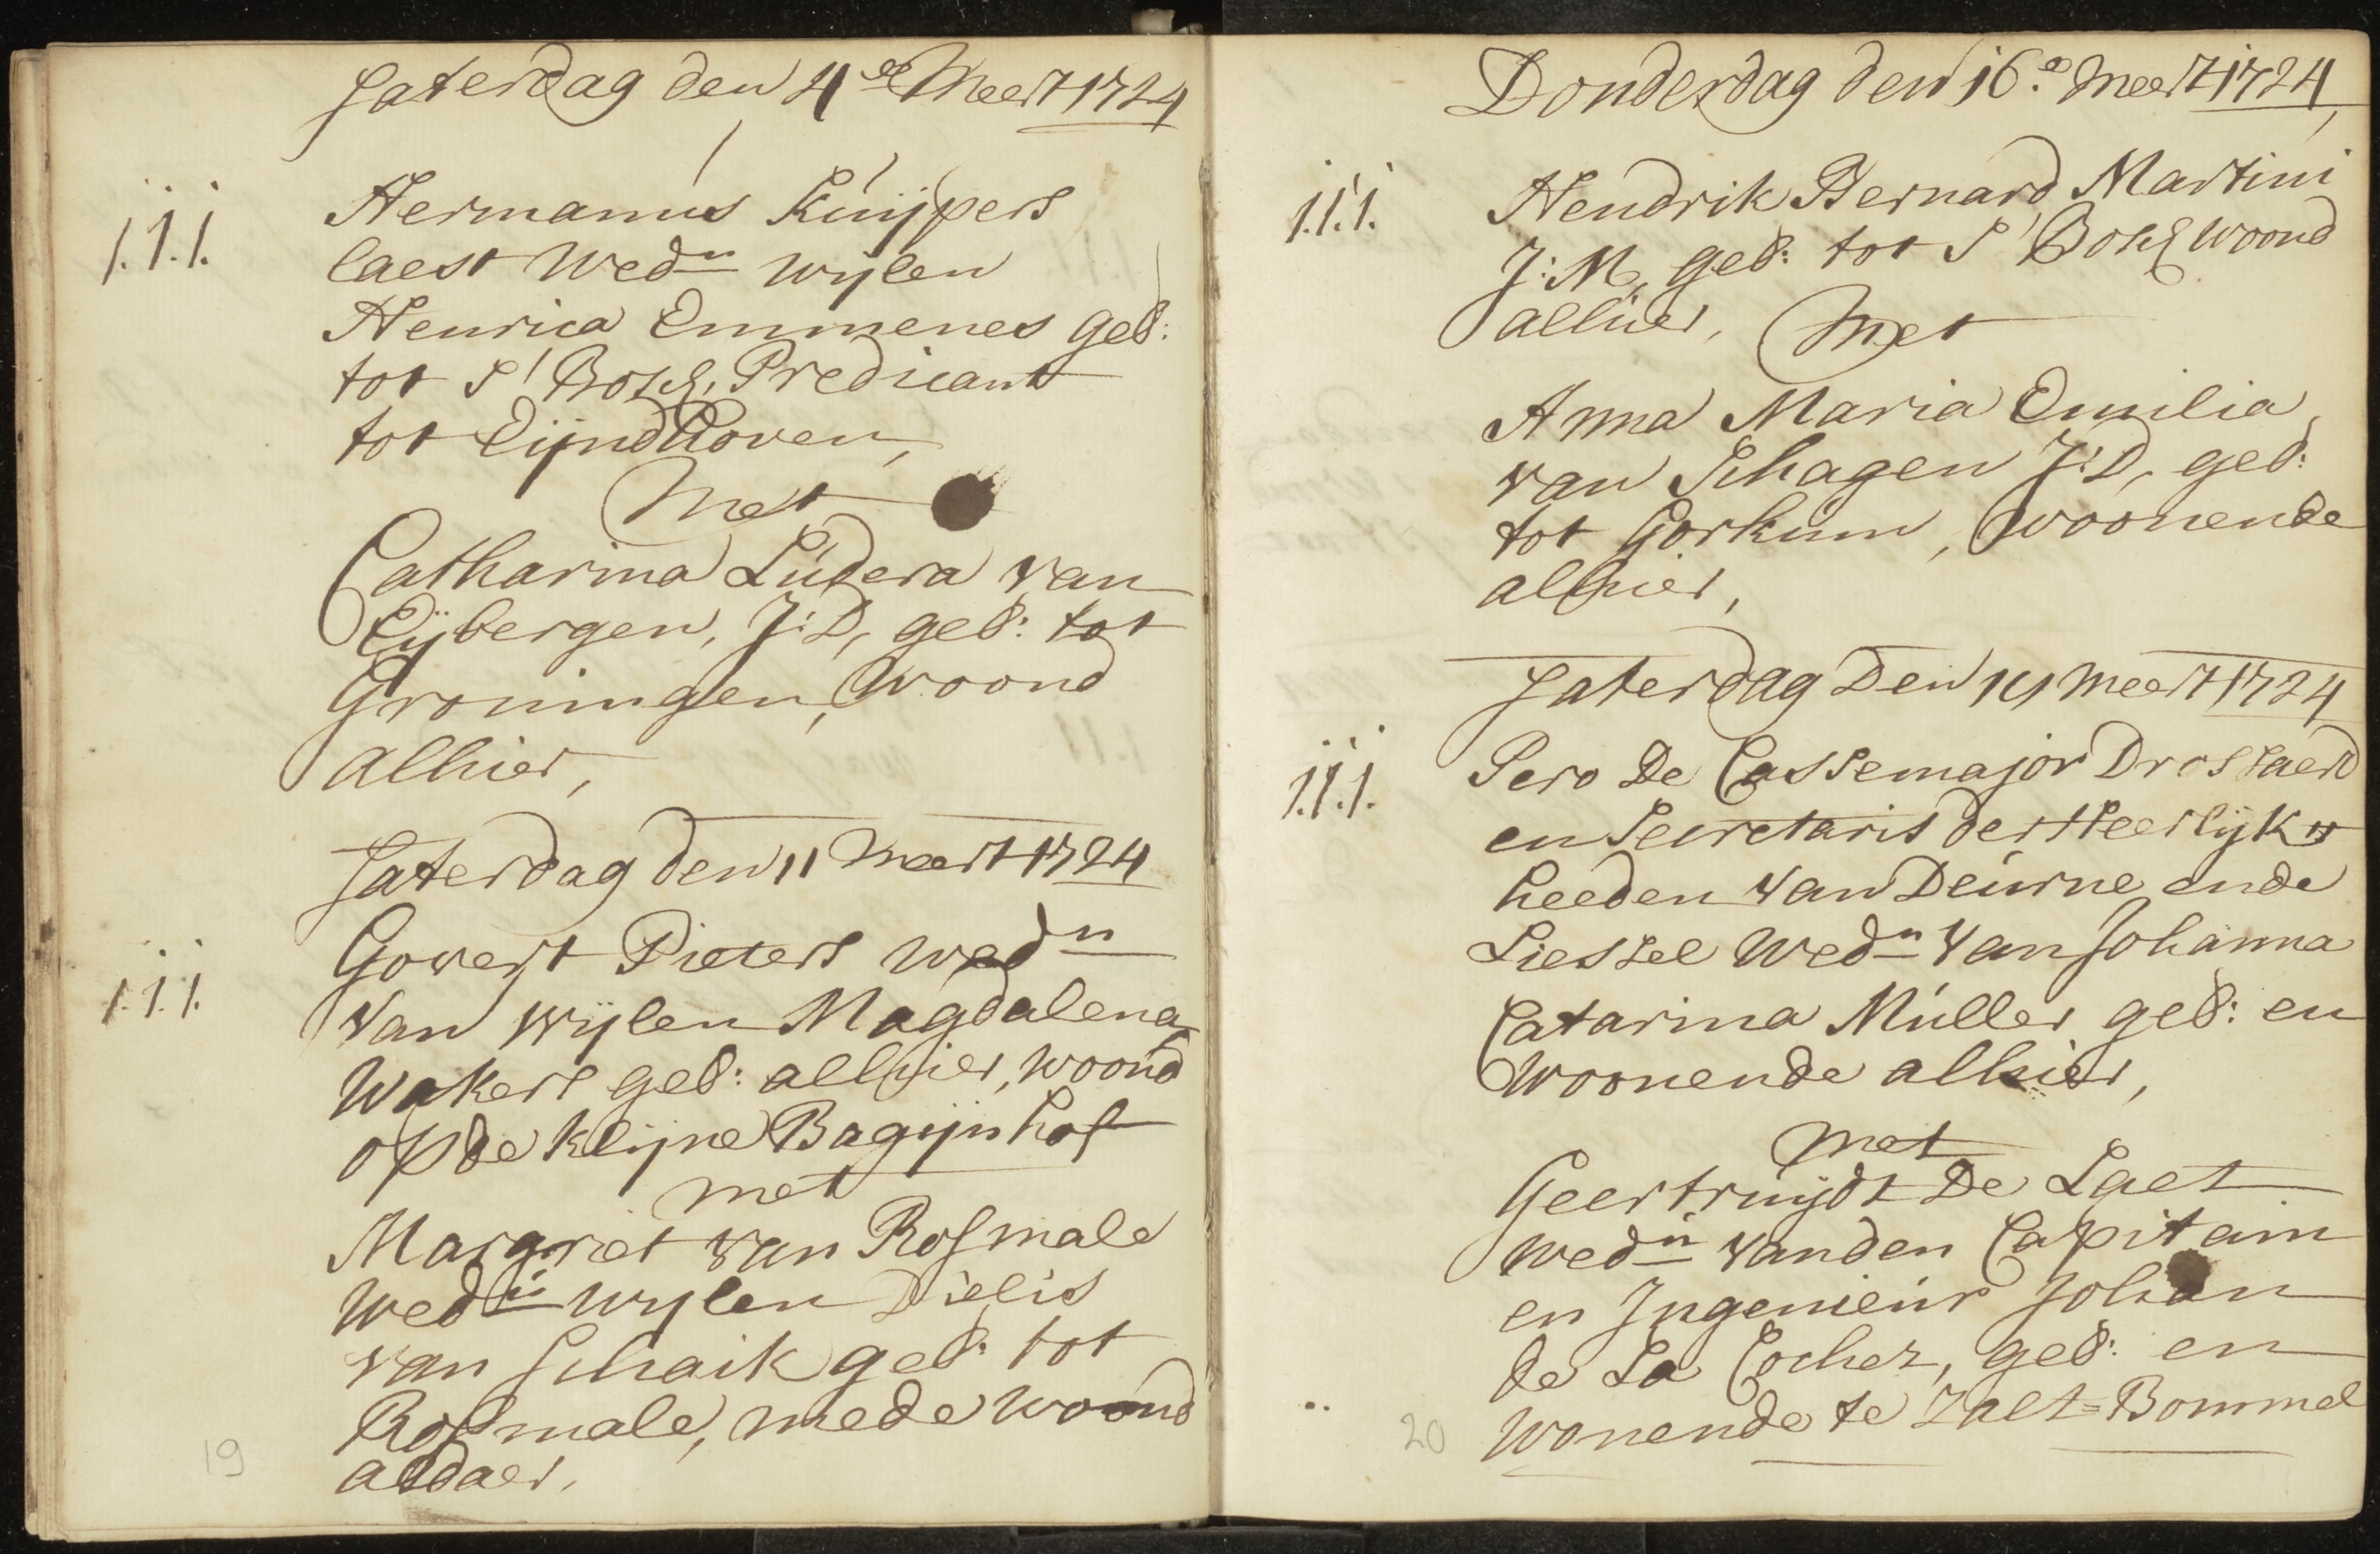 Saterdag den 4de Meert 1724
1.1.1.
Hermanus Kuijpers
laest Wedn wijlen
Henrica Emmenes geb:
tot S' Bosch, Predicant
tot Eijndhoven,
Met
Catharina Ludera van
Eijbergen, J:D, geb: tot
Groningen, Woond
alhier,
Saterdag den 11 Meert 1724
1.1.1.
Govert Pieters wedn
van wijlen Magdalena
Wakers geb: alhier, woond
op de klijne Bagijn hof
met
Margriet van Rosmale
Wedü wylen Dielis
van Schaik geb: tot
Rosmale, mede woond
aldaer.
19
Donderdag den 16e Meert 1724,
1.1.1.
Hendrik Bernard Martini
J:M, geb: tot S' Bosch woond
alhier, Met
Anna Maria Emilia
van Schagen J:D, geb:
tot Gorkum, Woonende
alhier,
Saterdag Den 18 Meert 1724
1.1.1.
Pero De Cassemajor Drossaerd
en Secretaris der Heerlijk=
heeden van Deurne ende
Liessel Wedn van Johanna
Catarina Muller geb: en
Woonende alhier,
met
Geertruijdt De Laet
wedü vanden Capitain
en Ingenieur Johan
de La Cocher, geb: en
wonende te Zalt=Bommel
20